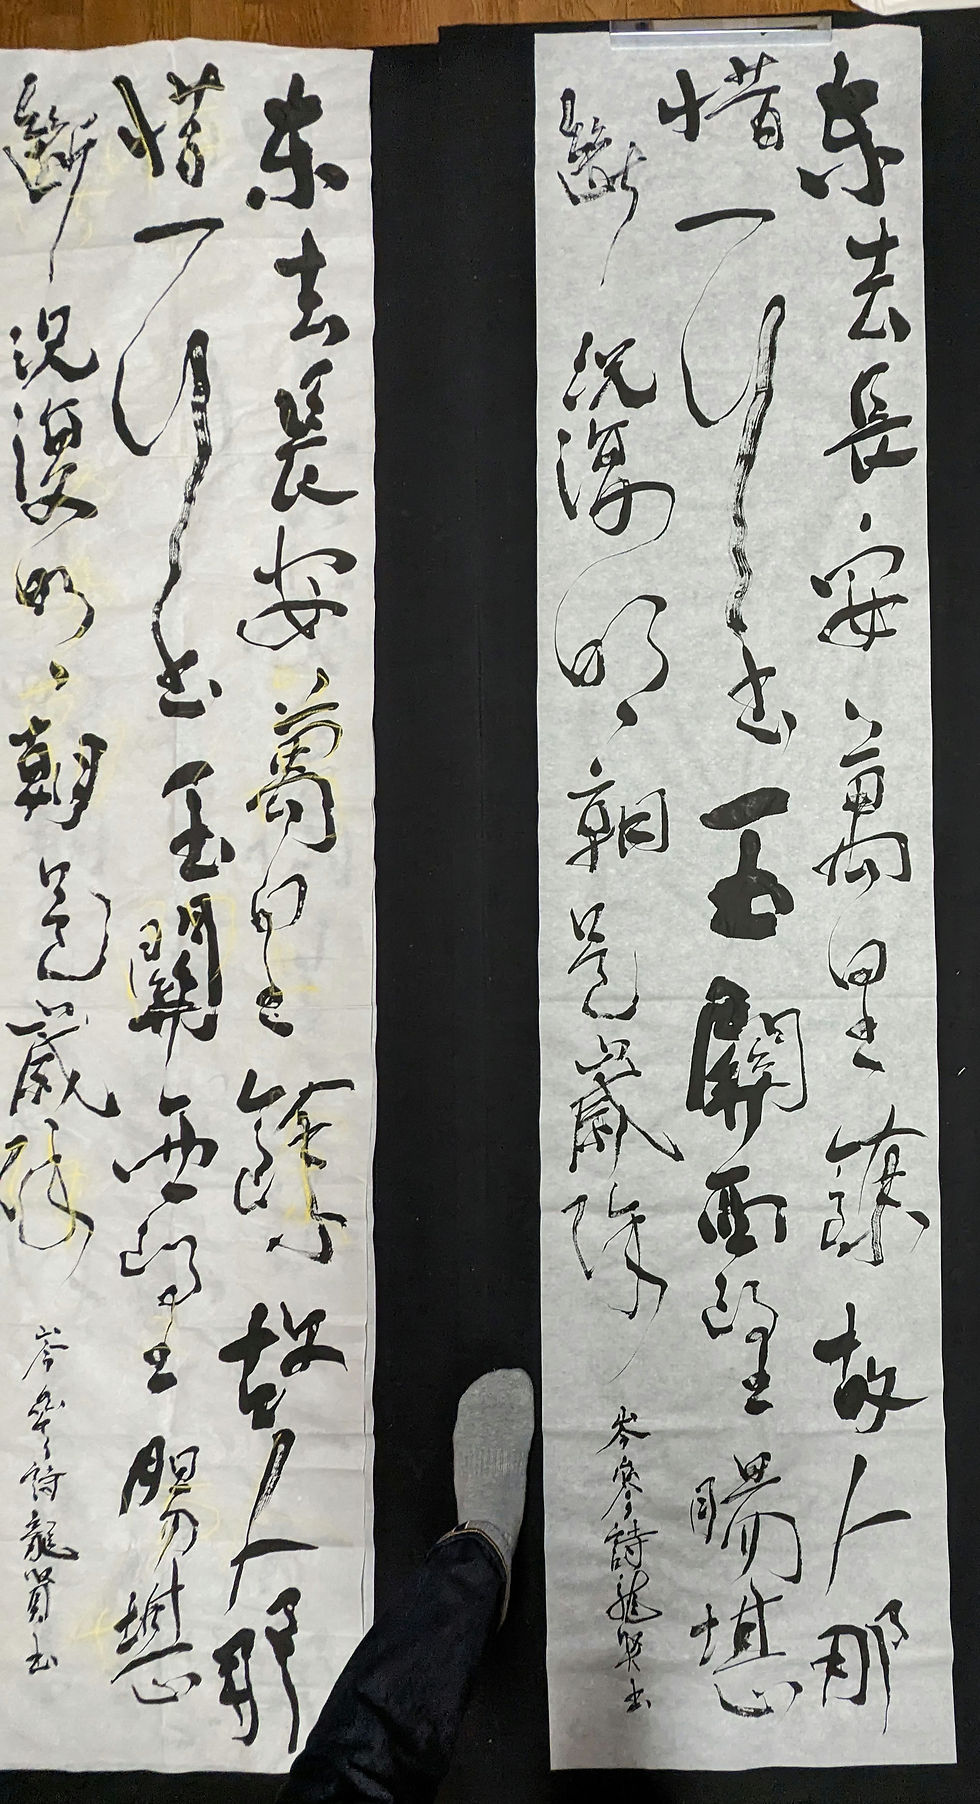 東去長安萬里餘故人那
惜一行書玉關西望腸堪
斷況復明朝是歲除 岑參詩龍賢書
東去長安萬里餘故人那
惜一行書玉關西望腸堪
斷況復明朝是歲除 岑參詩龍賢書